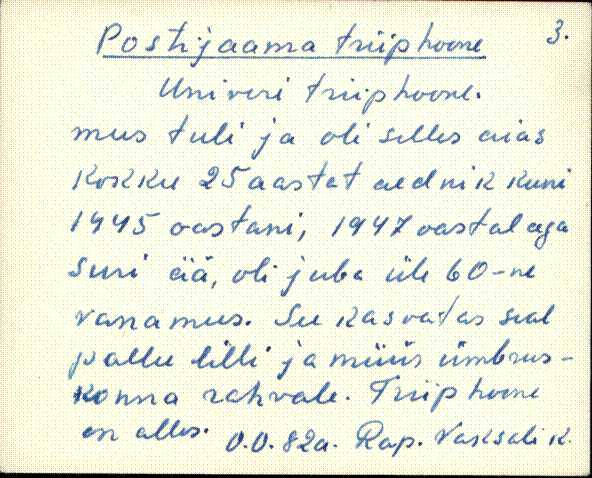 Postijaama triiphoone 3.
Univeri triiphoone.
mus tuli ja oli selles aias
kokku 25 aastat aednik kuni
1945 aastani, 1947 aastal aga
suri ää, oli juba üle 60-ne
vanamus. See kasvatas seal
pallu lilli ja müüs ümbrus-
konna rahvale. Triiphoone
on alles. O.O. 82a. Rap. Vaksali k.